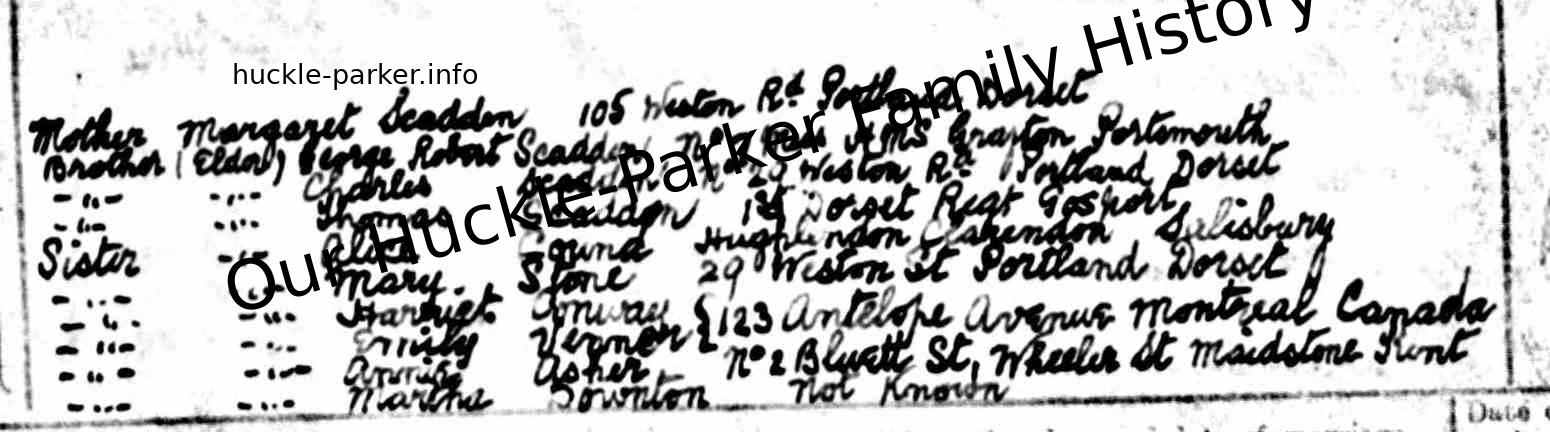 huckle-parker.info
Our Huckle-Parker Family History
Mother Margaret Scadden 105 Weston Rd Portland Dorset
Brother (Elder) George Robert Scadden HMS Grafton Portsmouth
-"- -"- Charles Scadden No 29 Weston Rd Portland Dorset
-"- -"- Thomas Scadden 1st Dorset Regt Gosport
Sister -"- Alice Clarendon Salisbury
-"- -"- Mary. Stone 29 Weston St Portland Dorset
-"- -"- Harriet Conway { 123 Antelope Avenue Montreal Canada
-"- -"- Emily Venner {
-"- -"- Annie Asher No 2 Bluett St, Wheeler St Maidstone Kent
-"- -"- Martha Downton Not Known
Date